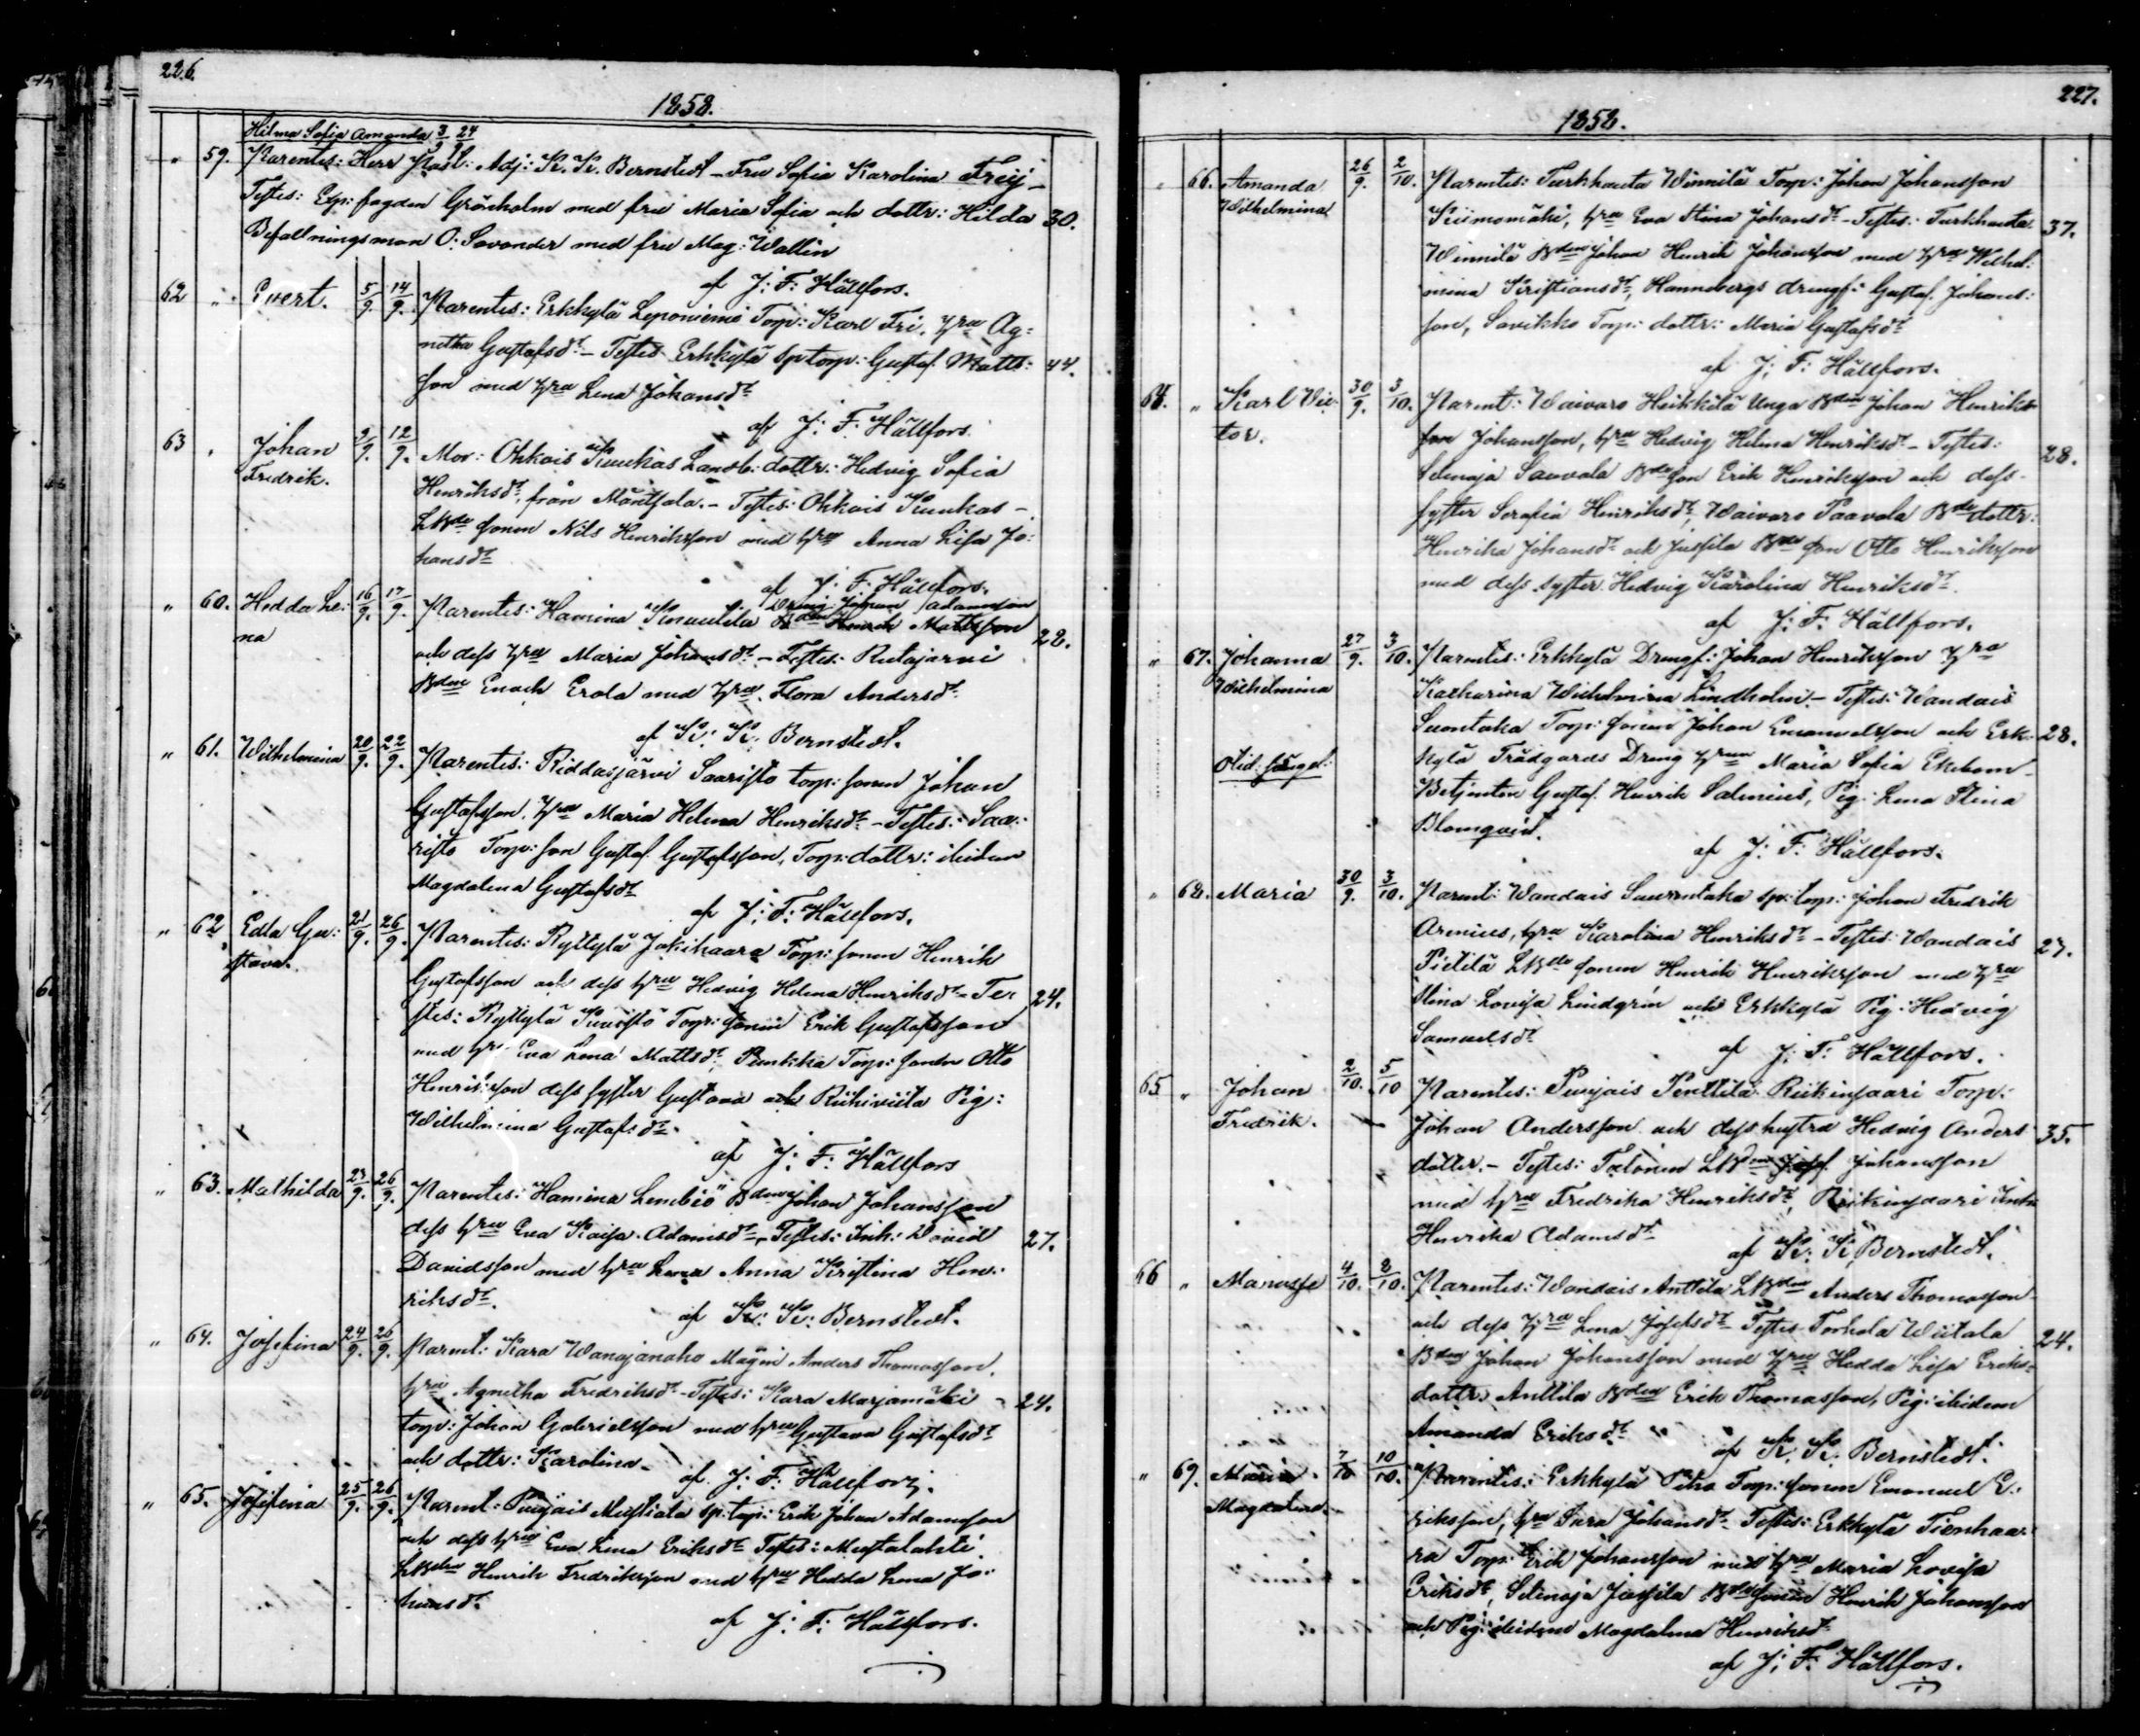 226.
1858.
Hilma Sofia Amanda 3/9 24/9
" 59. Parentes: Herr Past: Adj: K. K. Bernstedt – Fru Sofia Karolina Freij –
Testes: Exp: fogden Grönholm med fru Maria Sofia och dottr: Hilda 30.
Befallningsman O: Savander med fru Mag: Wallin
af J: F: Hällfors.
62 " Evert. 5/9. 14/9. Parentes: Erkkylä Leponiemi Torp: Karl Fri, hru Ag=
netha Gustafsdr – Testes Erkkylä sp torp: Gustaf Matts: 44.
son med hru Lena Johansdr
af J: F: Hällfors.
63 " Johan 9/9. 12/9. Mor: Ohkois Kuukas Landb: dottr: Hedvig Sofia
Fredrik. Henriksdr, från Mäntsälä. – Testes: Ohkois Kuukas –
LBde sonen Nils Henriksson med hru Anna Lisa Jo:
hansdr
af J: F: Hällfors.
Dreng Johan Adamsson
" 60. Hedda Le: 16/9. 17/9. Parentes: Hamina Knuutila Bden Henrik Mattsson 28.
na och dess hru Maria Johansdr – Testes: Rutajärvi
Bden Enoch Erola med hru Flora Andersdr
af K: K: Bernstedt.
" 61. Wilhelmina 20/9. 22/9. Parentes: Riddasjärvi Saaristo torp: sonen Johan
Gustafsson, hru Maria Helena Henriksdr – Testes: Saa:
risto Torp: son Gustaf Gustafsson, Torp: dottr: ibidem
Magdalena Gustafsdr
af J: F: Hällfors.
" 62. Edla Gu: 21/9. 26/9. Parentes: Ryttylä Jokihaara Torp: sonen Henrik
stava. Gustafsson och dess hru Hedvig Helena Henriksdr – Te: 24.
stes: Ryttylä Torp: sonen Erik Gustafsson
med hru Eva Lena Mattsdr, Torp: sonen Otto
Henriksson dess syster Gustava och Riihiviita Pig:
Wilhelmina Gustafsdr
af J: F: Hällfors
" 63. Mathilda 23/9. 26/9. Parentes: Hamina Lembiö Bden Johan Johansson
dess hru Eva Kaisa Adamsdr – Testes: Inh: David 27.
Davidsson med hru Lena Anna Kristina Hen:
riksdr.
af K: K: Bernstedt.
" 64. Josefina 24/9. 26/9. Parent: Kara Wanajanaho Mågen Anders Thomasson,
hru Agnetha Fredriksdr – Testes: Kara Marjamäki – 24.
torp: Johan Gabrielsson med hru Gustava Gustafsdr
och dottr: Karolina –
af J: F: Hällfors.
" 65. Josefina 25/9. 26/9. Parent: Puujais Mustiala sp: torp: Erik Johan Adamsson
och dess hru Eva Lena Eriksdr Testes: Mustalahti
LBden Henrik Fredriksson med hru Hedda Lena Jo:
hansdr.
af J: F: Hällfors.
227.
1858.
" 66. Amanda 26/9. 2/10. Parentes: Turkhauta Winnilä Torp: Johan Johansson
Wilhelmina Kiimamäki, hru Eva Stina Johansdr – Testes: Turkhauta 37.
Winnilä Bden Johan Henrik Johansson med hru Wilhel:
mina Kristiansdr, Hannebergs drengs: Gustaf Johans:
son, Savikko Torp: dottr: Maria Gustafsdr
af J: F: Hällfors.
64. " Karl Vic: 30/9. 3/10. Parent: Waivaro Heikkilä Unga Bden Johan Henriks
tor. son Johansson, hru Hedvig Helena Henriksdr – Testes: 28.
Selänoja Saavala Bde son Erik Henriksson och dess
syster Serafia Henriksdr, Waivaro Paavola Bde dottr:
Henrika Johansdr och Jussila Bde son Otto Henriksson
med dess syster Hedvig Karolina Henriksdr.
af J: F: Hällfors.
" 67. Johanna 27/9. 3/10. Parentes: Erkkylä Drengs: Johan Henriksson hru
Wilhelmina Katharina Wilhelmina Lindholm – Testes: Wandais
Suontaka Torp: sonen Johan Emanuelsson och Erk: 28.
kylä Trädgårds Dreng hrun Maria Sofia Ekebom –
Betjenten Gustaf Henrik Salenius, Pig: Lena Stina
Blomqvist.
af J: F: Hällfors.
" 68. Maria 30/9. 3/10. Parent: Wandais Suontaka sp: torp: Johan Fredrik
Arenius, hru Karolina Henriksdr – Testes: Wandais 27.
Pietilä LBde sonen Henrik Henriksson med hru
Stina Lovisa Lindgrén och Erkkylä Pig: Hedvig
Samuelsdr
af J: F: Hällfors.
65 " Johan 2/10. 5/10 Parentes: Puujais Penttilä Riikinsaari Torp:
Fredrik. Johan Andersson och dess hustru Hedvig Anders 35.
dotter. – Testes: Johansson
med hru Fredrika Henriksdr, Riikinsaari Inh:
Henrika Adamsdr
af K: K: Bernstedt.
66 " Manasse 4/10. 8/10. Parentes: Wandais Anttila LBden Anders Thomasson
och dess hru Lena Josefsdr Testes Torhola Wiitala 24.
Bden Johan Johansson med hru Hedda Lisa Eriks=
dottr, Anttila Bden Erik Thomasson, Pig: ibidem
Amanda Eriksdr
af K. K. Bernstedt.
" 69. Maria 7/10 10/10. Parentes: Erkkylä Torp: sonen Emanuel E:
Magdalena. riksson, hru Sara Johansdr – Testes: Erkkylä Tienhaa:
ra Torp: Erik Johansson med hru Maria Lovisa
Eriksdr, Selänoja Jussila Bde sonen Henrik Johansson
och Pig: ibidem Magdalena Henriksdr
af J: F: Hällfors.